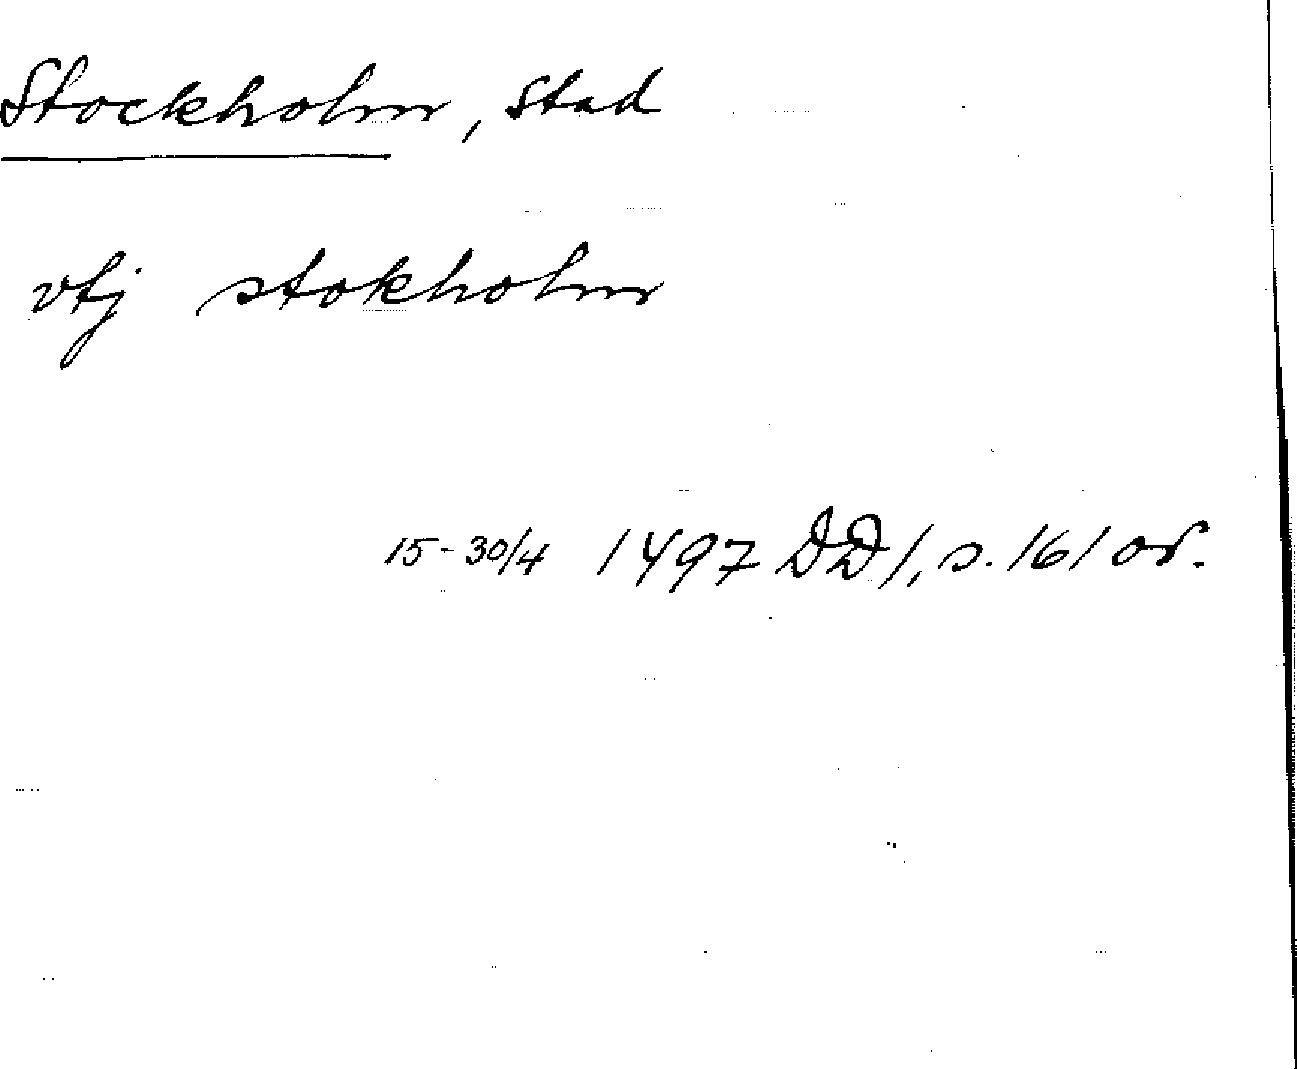 Stockholm, Stad
vtj stokholm
15-30/4 1497 DD1, s. 161 or.